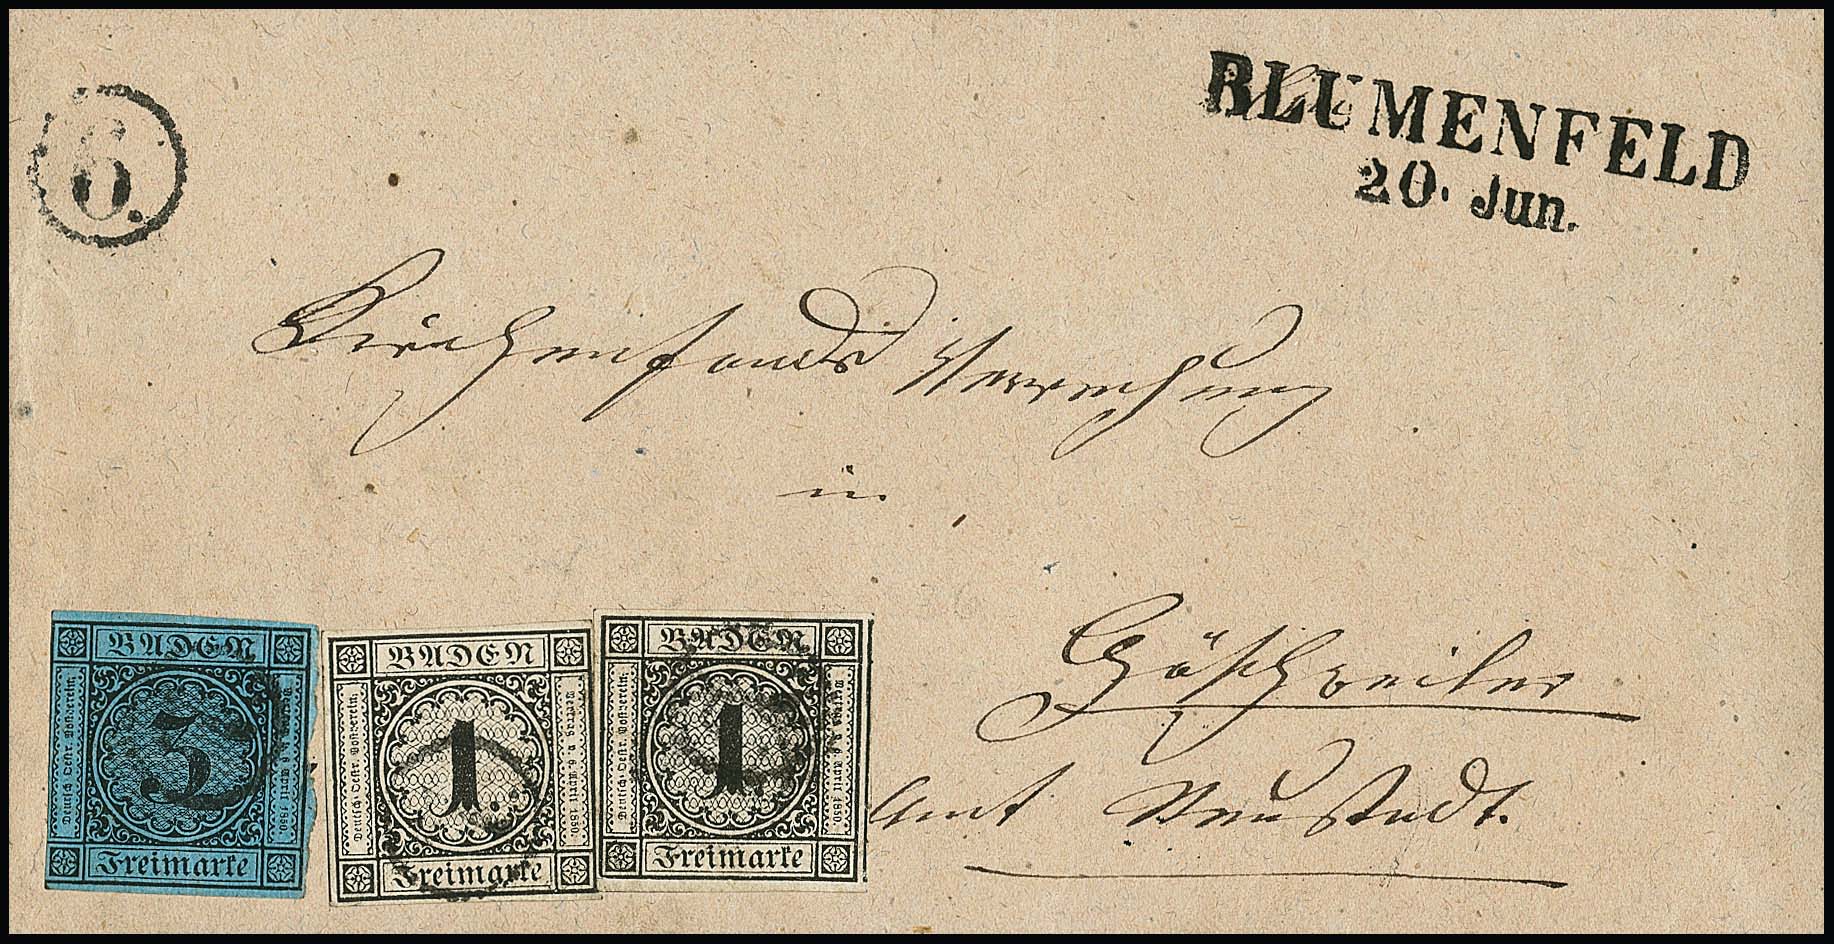 6.
BLUMENFELD
20. Jun.
Kirchenfonds Verrechnung
in
Göschweiler
Amt Neustadt.
BADEN
Deutsch-Oestr. Postverein;
3
Vertrag v. 6 April 1850.
Freimarke
BADEN
Deutsch-Oestr. Postverein;
1
Vertrag v. 6. April 1850.
Freimarke
BADEN
Deutsch-Oestr. Postverein;
1
Vertrag v. 6 April 1850.
Freimarke